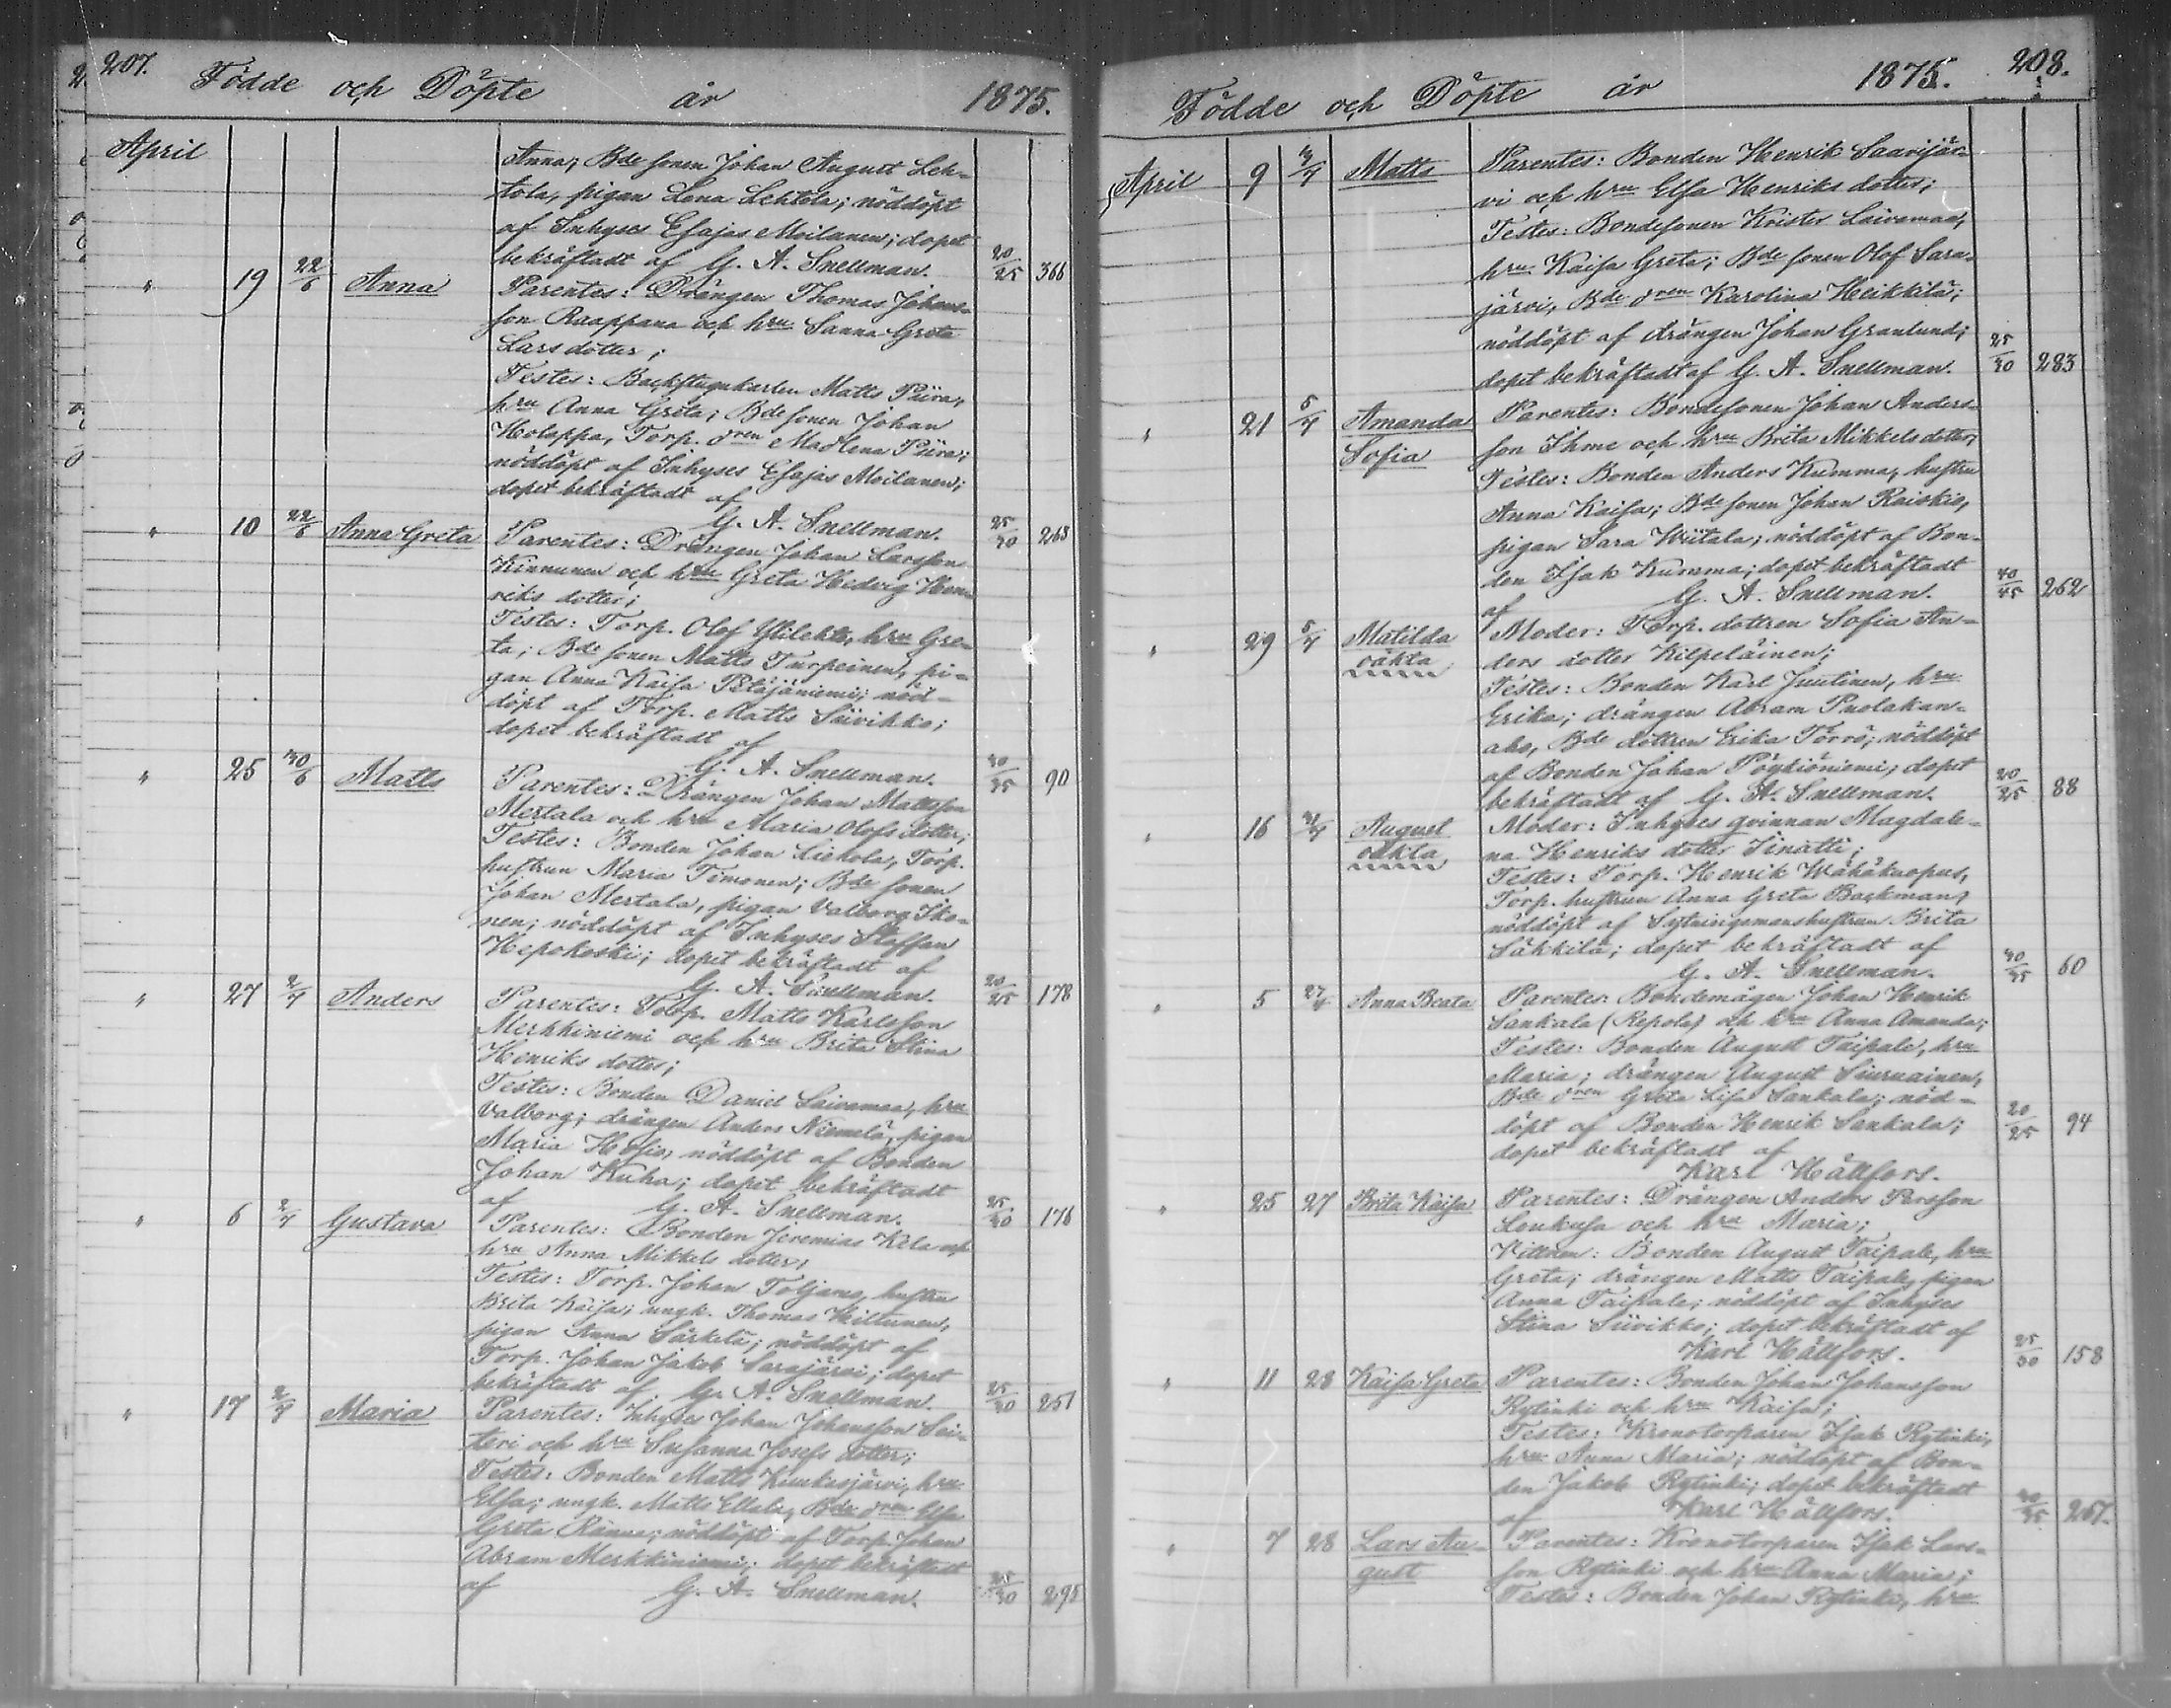 207. Födde och Döpte år 1875.
April
Anna, Bde sonen Johan August Leh-
tola, pigan Lena Lehtola; nöddöpt
af Inhyses Esajas Moilanen; dopet
bekräftadt af G. A. Snellman. 20/25 366
" 19 22/6 Anna Parentes: Drängen Thomas Johans-
son Raappana och hru Sanna Greta
Lars dotter;
Testes: Backstugukarlen Matts Piira,
hru Anna Greta; Bde sonen Johan
Holappa, Torp. dren Madlena Piira;
nöddöpt af Inhyses Esajas Moilanen;
dopet bekräftadt af
G. A. Snellman. 25/30 263
" 10 22/6 Anna Greta Parentes: Drängen Johan Larsson
Kinnunen och hru Greta Hedvig Hen-
riks dotter;
Testes: Torp. Olof Ylilehto, hru Gre-
ta; Bde sonen Matts Turpeinen, pi-
gan Anna Kaisa Petäjäniemi; nöd-
döpt af Torp. Matts Siivikko;
dopet bekräftadt af
G. A. Snellman. 30/35 90
" 25 30/6 Matts Parentes: Drängen Johan Mattsson
Mertala och hru Maria Olofs dotter;
Testes: Bonden Johan Liekola, Torp.
hustrun Maria Timonen; Bde sonen
Johan Mertala, pigan Valborg Iko-
nen; nöddöpt af Inhyses Staffan
Hepokoski; dopet bekräftadt af
G. A. Snellman. 20/25 178
" 27 2/7 Anders Parentes: Torp. Matts Karlsson
Merkkiniemi och hru Brita Stina
Henriks dotter;
Testes: Bonden Daniel Laivamaa, hru
Valborg; drängen Anders Niemelä, pigan
Maria Hosio; nöddöpt af Bonden
Johan Kuha; dopet bekräftadt
af G. A. Snellman. 25/30 176
" 6 2/7 Gustava Parentes: Bonden Jeremias Kela och
hru Anna Mikkels dotter;
Testes: Torp. Johan Toljamo, hustru
Brita Kaisa; ungk. Thomas Kiltunen,
pigan Anna Särkelä; nöddöpt af
Torp. Johan Jakob Sarajärvi; dopet
bekräftadt af G. A. Snellman. 25/30 251
" 17 2/7 Maria Parentes: Inhyses Johan Johansson Sei-
teri och hru Susanna Josefs dotter;
Testes: Bonden Matts Kuukasjärvi, hru
Elsa; ungk. Matts Ellala, Bde dren Elsa
Greta Ränna; nöddöpt af Torp. Johan
Abram Merkkiniemi; dopet bekräftadt
af G. A. Snellman. 25/30 295
Födde och Döpte år 1875. 208.
April 9 4/7 Matts Parentes: Bonden Henrik Saarijär-
vi och hru Elsa Henriks dotter;
Testes: Bondesonen Krister Laivamaa,
hru Kaisa Greta; Bde sonen Olof Sara-
järvi, Bde dren Karolina Heikkilä;
nöddöpt af drängen Johan Granlund;
dopet bekräftadt af G. A. Snellman. 25/30 283
" 21 5/7 Amanda Parentes: Bondesonen Johan Anders-
Sofia son Ihme och hru Brita Mikkels dotter;
Testes: Bonden Anders Kumma, hustru
Anna Kaisa; Bde sonen Johan Raiskio,
pigan Sara Wiitala; nöddöpt af Bon-
den Isak Kumma; dopet bekräftadt
af G. A. Snellman. 40/45 262
" 29 5/7 Matilda Moder: Torp. dottren Sofia An-
oäkta ders dotter Kilpeläinen;
Testes: Bonden Karl Juutinen, hru
Erika; drängen Abram Puolakan-
aho, Bde dottren Erika Törrö; nöddöpt
af Bonden Johan Pöykiöniemi; dopet
bekräftadt af G. A. Snellman. 20/25 88
" 16 31/7 August Moder: Inhyses qvinnan Magdale-
oäkta na Henriks dotter Sinatti;
Testes: Torp. Henrik Wähäkuopus,
Torp. hustrun Anna Greta Backman;
nöddöpt af Sytningsmanshustrun Brita
Säkkilä; dopet bekräftadt af
G. A. Snellman. 30/35 60
" 5 27/4 Anna Beata Parentes: Bondemågen Johan Henrik
Sankala (Repola) och hru Anna Amanda;
Testes: Bonden August Taipale, hru
Maria; drängen August Siuruainen,
Bde dren Greta Lisa Sankala; nöd-
döpt af Bonden Henrik Sankala; 20/25 94
dopet bekräftadt af
Karl Hällfors.
" 25 27 Brita Kaisa Parentes: Drängen Anders Persson
Loukusa och hru Maria;
Vittnen: Bonden August Taipale, hru
Greta; drängen Matts Taipale, pigan
Anna Taipale; nöddöpt af Inhyses
Stina Siivikko; dopet bekräftadt af
Karl Hällfors. 25/30 158
" 11 28 Kaisa Greta Parentes: Bonden Johan Johansson
Rytinki och hru Kaisa;
Testes: Kronotorparen Isak Rytinki,
hru Anna Maria; nöddöpt af Bon-
den Jakob Rytinki; dopet bekräftadt
af Karl Hällfors. 30/35 267.
" 7 28 Lars Au- Parentes: Kronotorparen Isak Lars-
gust son Rytinki och hru Anna Maria;
Testes: Bonden Johan Rytinki, hru